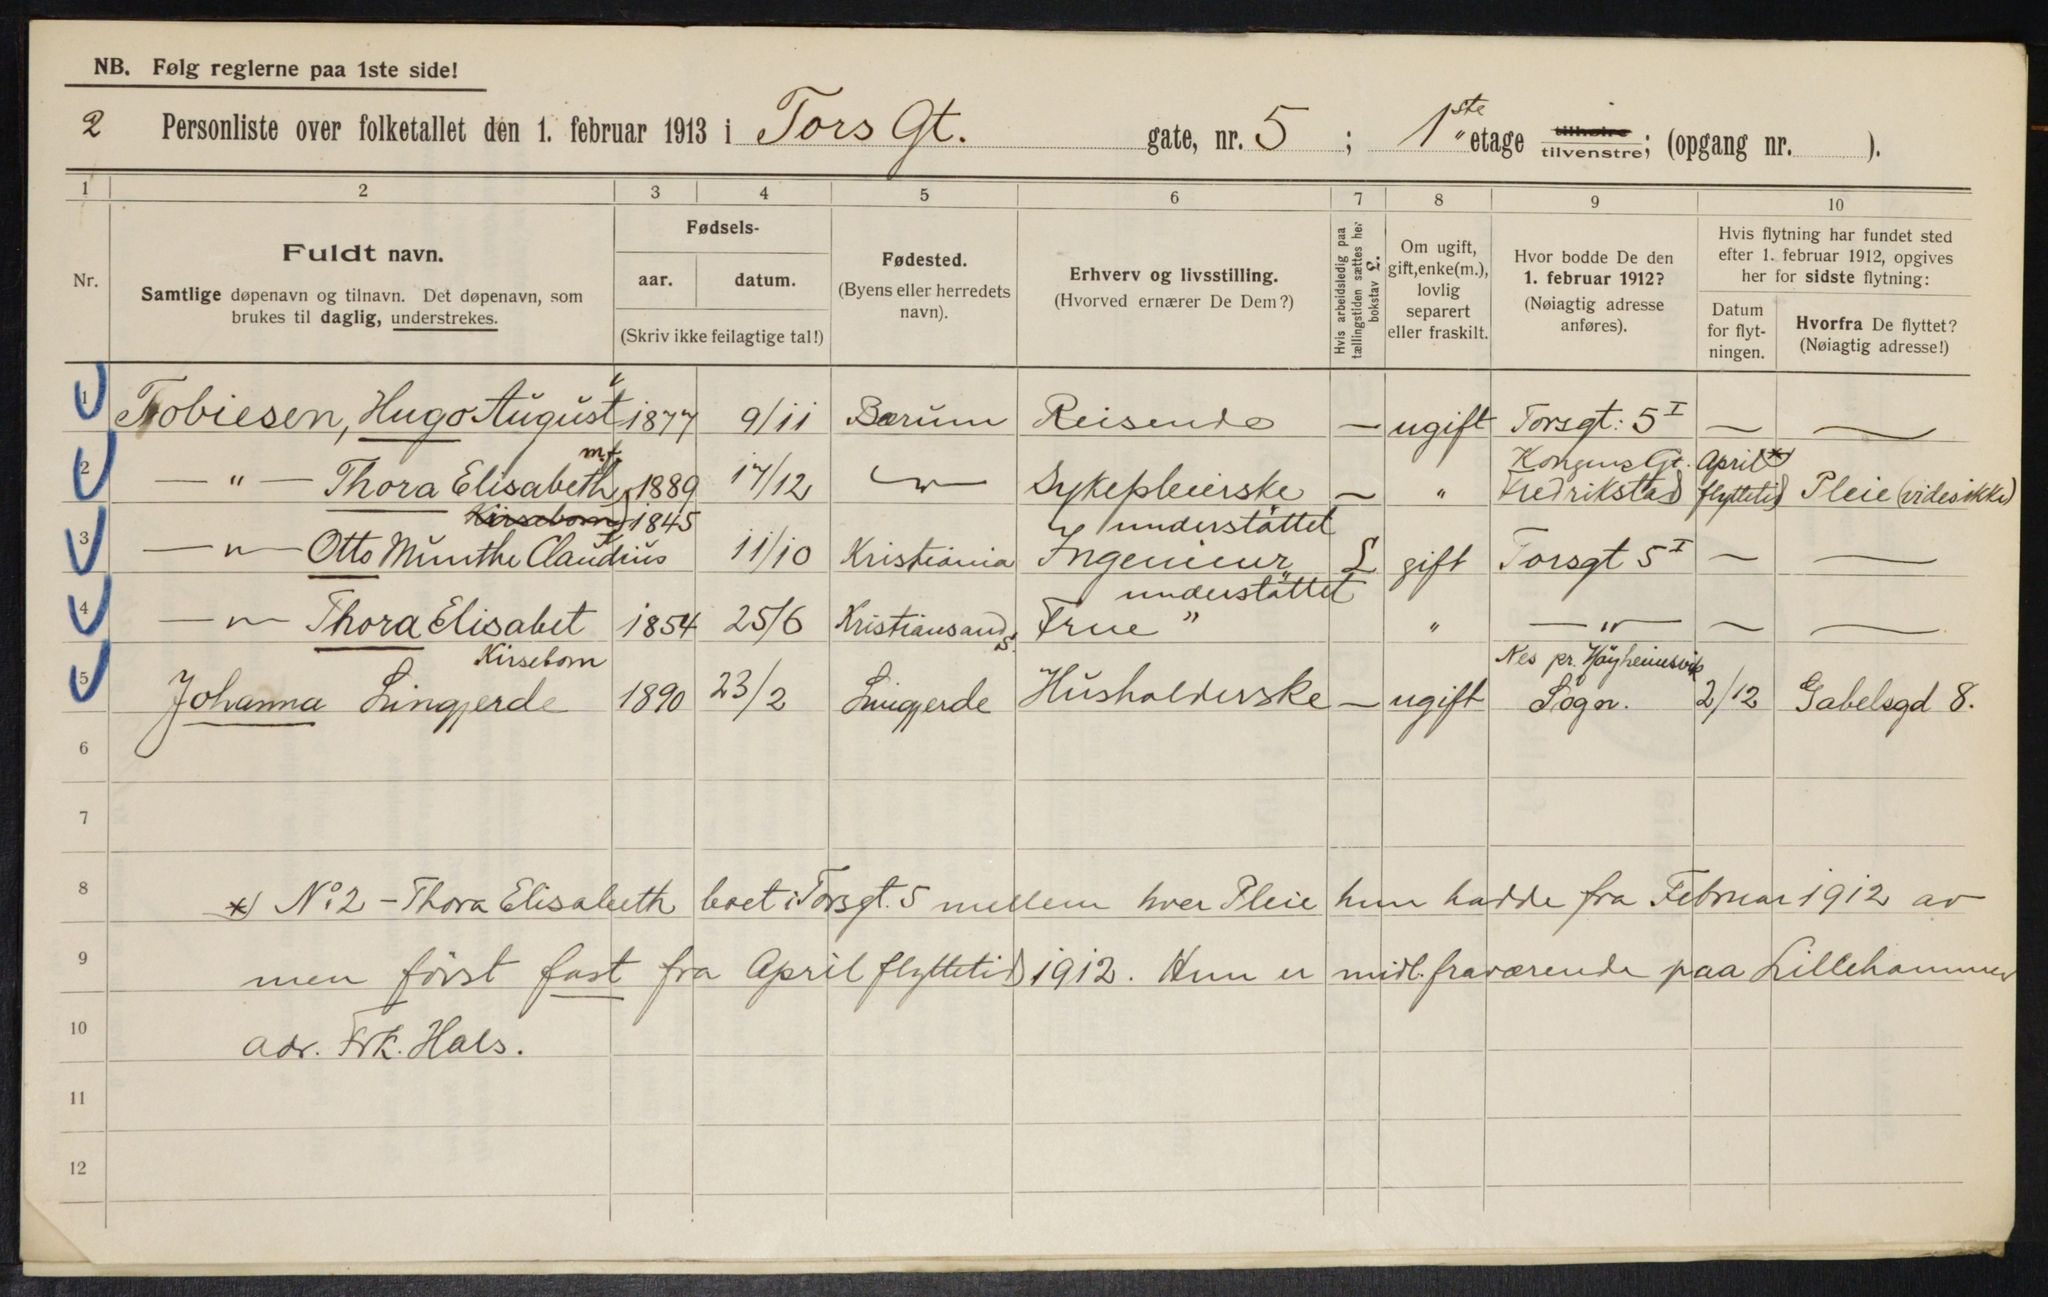 NB. Følg reglerne paa 1ste side!
2 Personliste over folketallet den 1. februar 1913 i Tors Gt. gate, nr. 5 ; 1ste " etage tilhøire tilvenstre; (opgang nr. ).
1 2 3 4 5 6 7 8 9 10
Nr.
Fuldt navn.
Samtlige døpenavn og tilnavn. Det døpenavn, som
brukes til daglig, understrekes.
Fødsels-
aar. datum.
(Skriv ikke feilagtige tal!)
Fødested.
(Byens eller herredets
navn).
Erhverv og livsstilling.
(Hvorved ernærer De Dem?)
Hvis arbeidsledig paa
tællingstiden sættes her
bokstav L.
Om ugift,
gift, enke(m.),
lovlig
separert
eller fraskilt.
Hvor bodde De den
1. februar 1912?
(Nøiagtig adresse
anføres).
Hvis flytning har fundet sted
efter 1. februar 1912, opgives
her for sidste flytning:
Datum
for flyt-
ningen.
Hvorfra De flyttet?
(Nøiagtig adresse!)
1 Tobiesen, Hugo August 1877 9/11 Bærum Reisende — ugift Torsgt: 5 I — —
m.f. Kongens Gt. April *)
2 — " — Thora Elisabeth 1889 17/12 — " — Sykepleierske — " Fredrikstad flyttetid Pleie (vides ikke)
Kirsebom 1845 understøttet
3 — " — Otto Munthe Claudius 11/10 Kristiania Ingeniør L gift Torsgt 5 I — —
understøttet
4 — " — Thora Elisabet 1854 25/6 Kristiansand S. Frue " " — " — — —
Kirsebom Nes pr. Høyheimsvik
5 Johanna Lingjerde 1890 23/2 Lingjerde Husholderske — ugift Sogn. 2/12 Gabelsgd 8.
6
7
8 *) No 2 - Thora Elisabeth boet i Torsgt. 5 mellem hver Pleie hun hadde fra Februar 1912 av
9 men først fast fra April flyttetid 1912. Hun er midl. fraværende paa Lillehammer
10 adr. Frk. Hals.
11
12